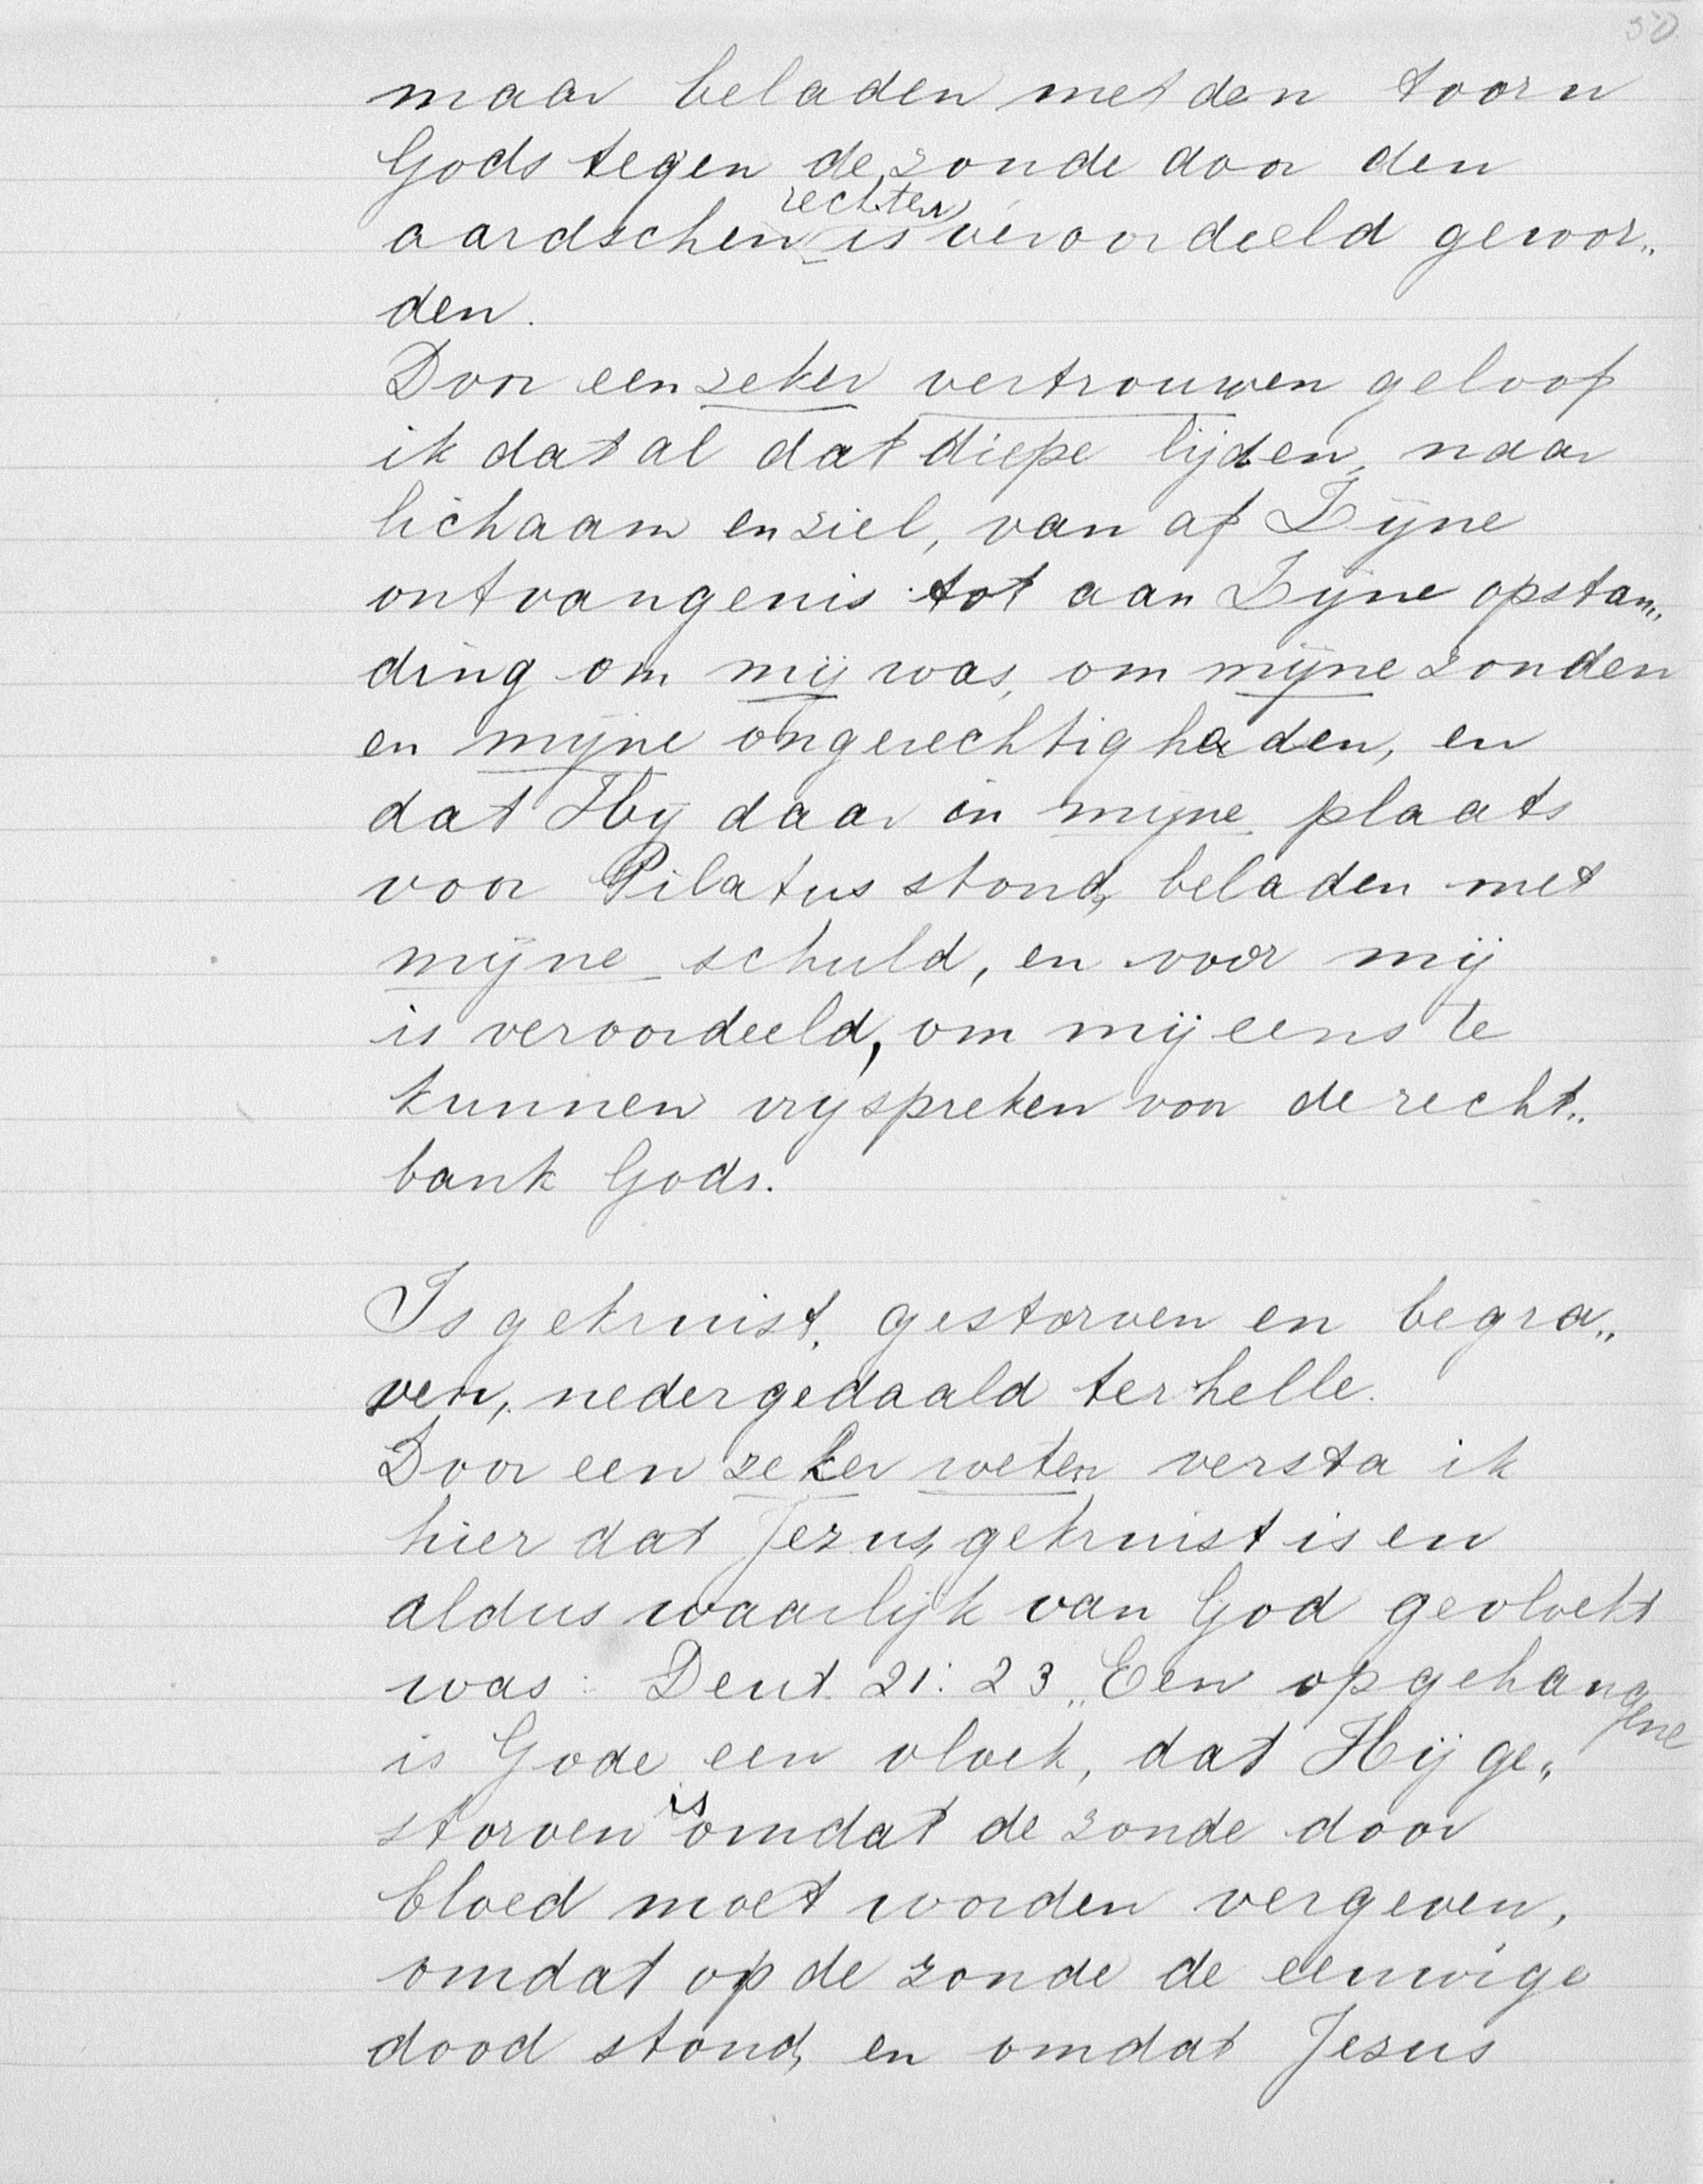 50.
maar beladen met den toorn
Gods tegen de zonde door den
aardschen rechter is veroordeeld gewor„
den.
Door een zeker vertrouwen geloof
ik dat al dat diepe lijden, naar
lichaam en ziel, van af Zijne
ontvangenis tot aan Zijne opstan„
ding om mij was, om mijne zonden
en mijne ongerechtigheden, en
dat Hij daar in mijne plaats
voor Pilatus stond, beladen met
mijne schuld, en voor mij
is veroordeeld, om mij eens te
kunnen vrijspreken voor de recht„
bank Gods.
Is gekruist, gestorven en begra„
ven, nedergedaald ter helle.
Door een zeker weten versta ik
hier dat Jezus, gekruist is en
aldus waarlijk van God gevloekt
was: Deut. 21:23 „Een opgehangene
is Gode een vloek, dat Hij ge„
storven is omdat de zonde door
bloed moet worden vergeven,
omdat op de zonde de eeuwige
dood stond, en omdat Jezus